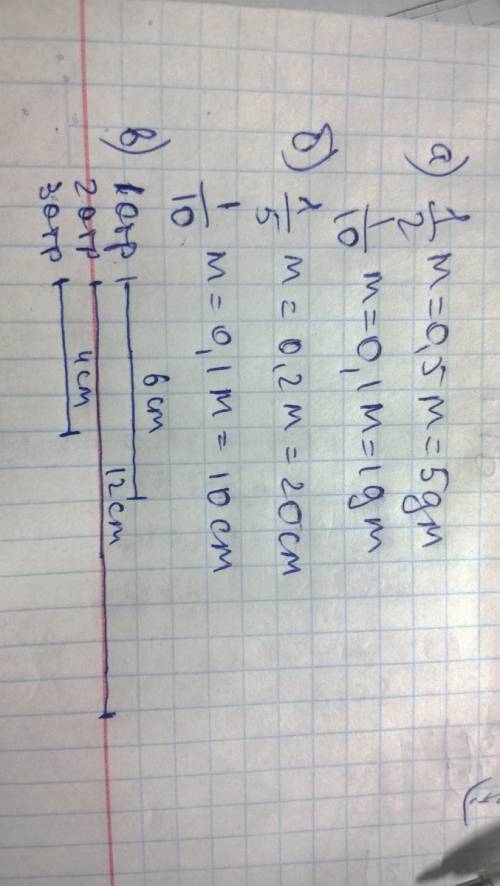 а) 1/2 м = 0,5 м = 5 gм
1/10 м = 0,1 м = 1 gм
б) 1/5 м = 0,2 м = 20 см
1/10 м = 0,1 м = 10 см
в) 1 отр 6 см
2 отр 12 см
3 отр 4 см